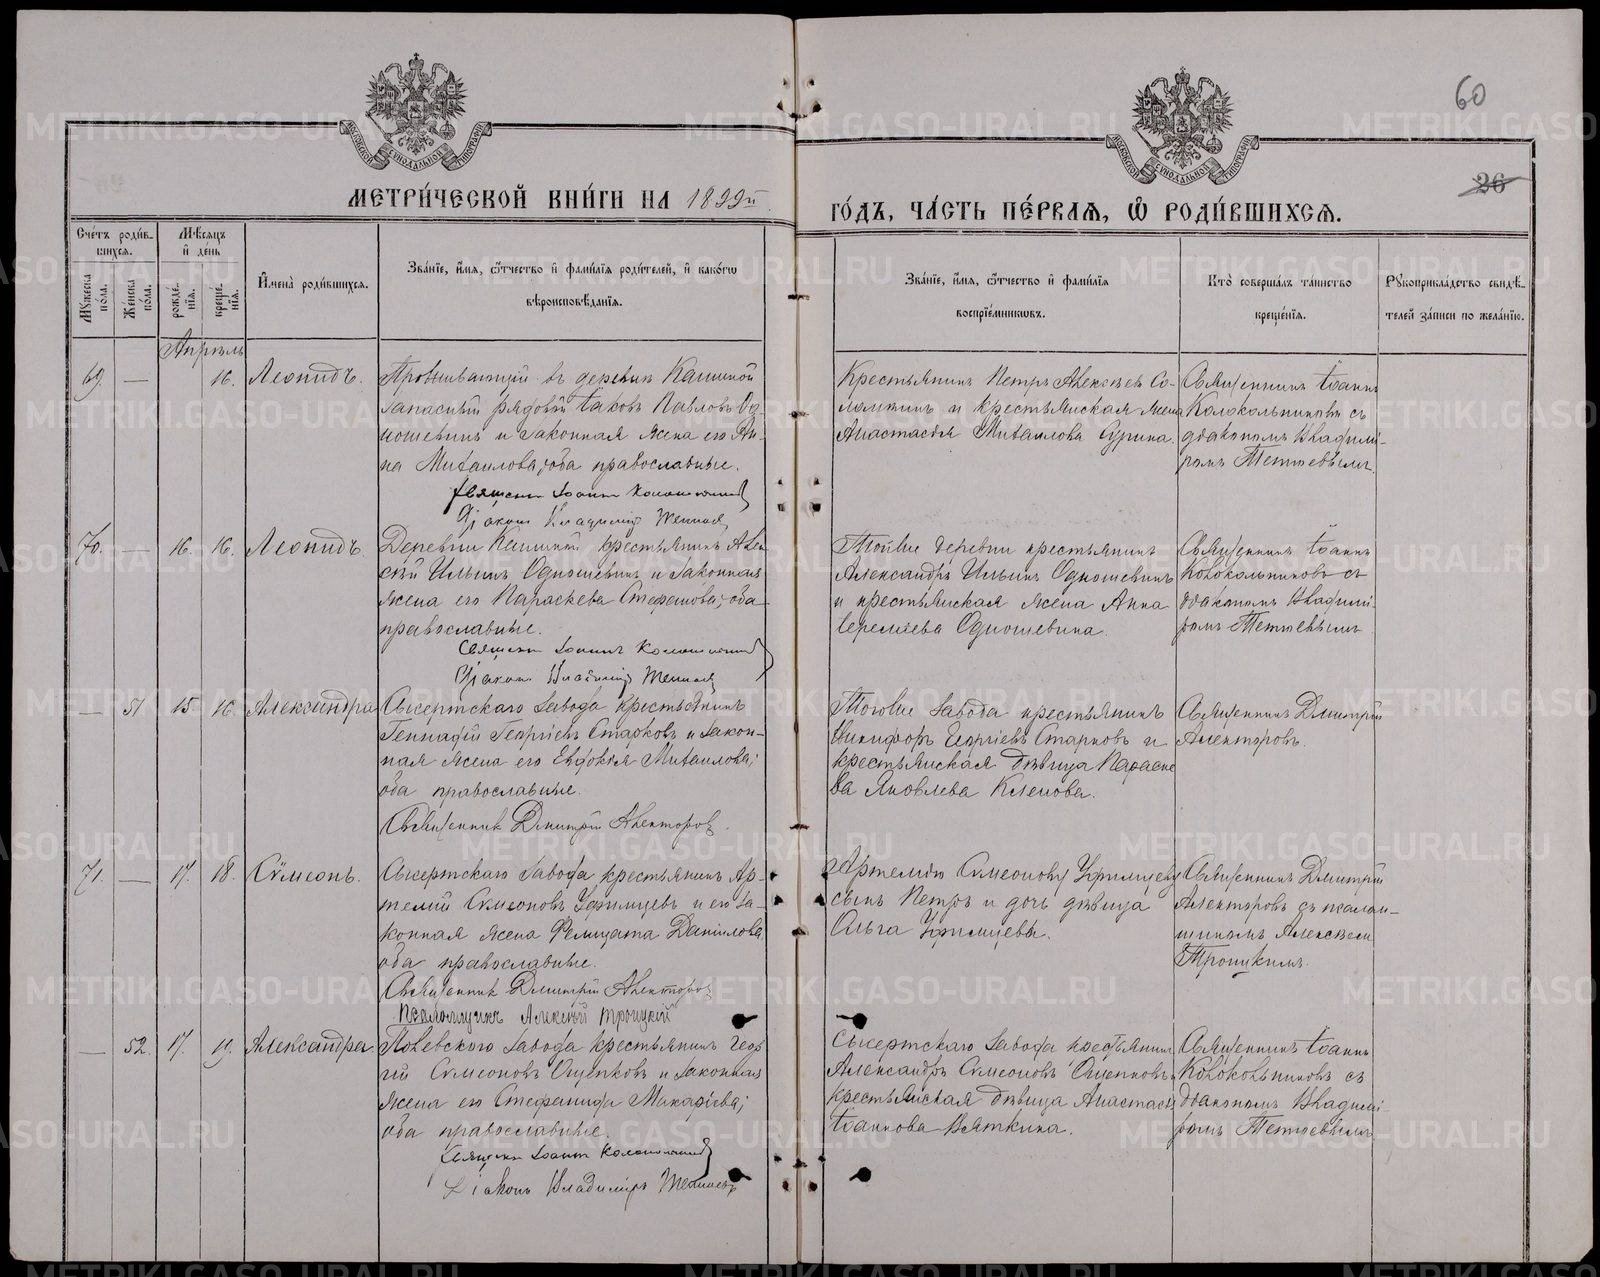 60
26
МОСКОВСКОЙ СѴНОДАЛЬНОЙ ТИПОГРАФІИ
МОСКОВСКОЙ СѴНОДАЛЬНОЙ ТИПОГРАФІИ
МЕТРИ́ЧЕСКОЙ КНИ́ГИ НА 1899й
ГО́ДЪ, ЧА́СТЬ ПЕ́РВАЯ, Ѽ РОДИ́ВШИХСЯ.
Сче́тъ роди́вшихся.
Мѣ́сяцъ и҆ де́нь
Му́жеска по́ла.
Же́нска по́ла.
рожде́нія.
креще́нія.
И҆мена̀ роди́вшихся.
Зва́ніе, и҆́мя, ѻ҆́тчество и҆ фами́лія роди́телей, и҆ како́гѡ вѣроисповѣ́данія.
Зва́ніе, и҆́мя, ѻ҆́тчество и҆ фами́лія воспріе́мниковъ.
Кто̀ соверша́лъ та́инство креще́нія.
Рукоприкла́дство свидѣ́телей за́писи по жела́нію.
Апрѣль
69. — 16. Леонидъ.
Проживающій въ деревнѣ Кашиной
запасный рядовой Іаковъ Павловъ Од-
ношевинъ и законная жена его Ан-
на Михаилова; оба православные.
Священ. Іоаннъ Колокольниковъ
Діаконъ Владиміръ
Крестьянинъ Петръ Алексѣевъ Со-
ломинъ и крестьянская жена
Анастасія Михаилова Сурина.
Священникъ Іоаннъ
Колокольниковъ съ
діакономъ Владимі-
ромъ
70. — 16. 16. Леонидъ
Деревни Кашиной крестьянинъ Алек-
сѣй Ильинъ Одношевинъ и законная
жена его Параскева Стефанова; оба
православные.
Священ. Іоаннъ Колокольниковъ
Діаконъ Владиміръ
Тойже деревни крестьянинъ
Александръ Ильинъ Одношевинъ
и крестьянская жена Анна
Одношевина.
Священникъ Іоаннъ
Колокольниковъ съ
діакономъ Владимі-
ромъ
— 51 15 16 Александра
Сысертскаго завода крестьянинъ
Геннадій Георгіевъ Старковъ и закон-
ная жена его Евдокія Михаилова;
оба православные.
Священникъ Дмитрій Алекторовъ.
Тогоже завода крестьянинъ
Никифоръ Георгіевъ Старковъ и
крестьянская дѣвица Параске
ва Яковлева Кленова.
Священникъ Дмитрій
Алекторовъ.
71. — 17. 18. Сѵмеонъ.
Сысертскаго завода крестьянинъ Ар-
темій Сѵмеоновъ Уфимцевъ и его за-
конная жена Фелицата Даніилова
оба православные.
Священникъ Дмитрій Алекторовъ
Псаломщикъ Алексѣй Троицкій
Артемія Сѵмеонова Уфимцева
сынъ Петръ и дочь дѣвица
Ольга Уфимцевы.
Священникъ Дмитрій
Алекторовъ съ псалом-
щикомъ Алексѣемъ
Троицкимъ.
— 52. 17. 19. Александра.
завода крестьянинъ Геор
гій Сѵмеоновъ Ощепковъ и законная
жена его Стефанида Макаріева;
оба православные.
Священ. Іоаннъ Колокольниковъ
Діаконъ Владиміръ
Сысертскаго завода крестьянинъ
Александръ Сѵмеоновъ Ощепковъ
крестьянская дѣвица Анастасія
Іоаннова Вяткина.
Священникъ Іоаннъ
Колокольниковъ съ
діакономъ Владимі-
ромъ
METRIKI.GASO-URAL.RU